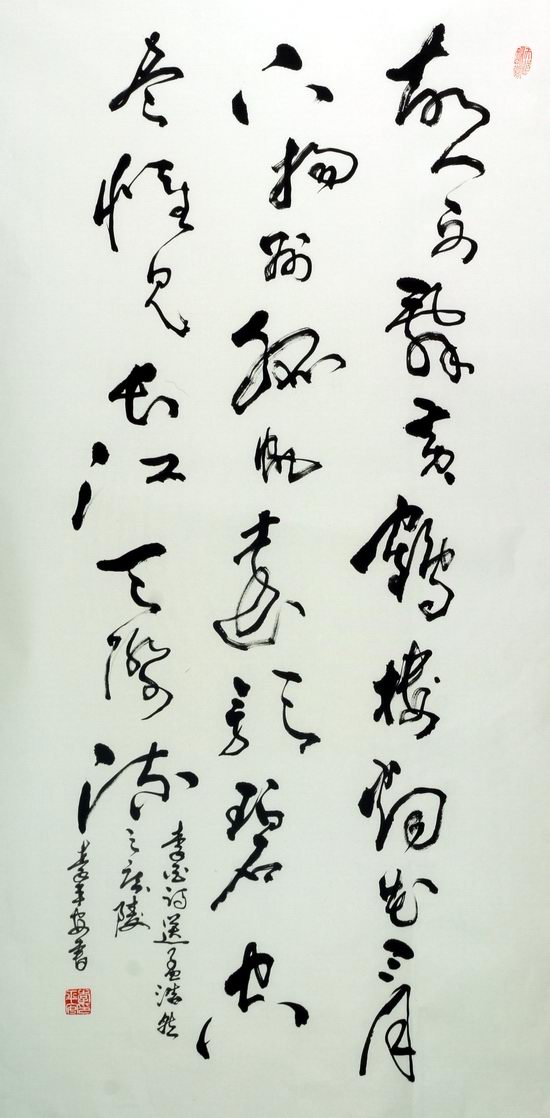 故人西辭黃鶴樓烟花三月
下揚州孤帆遠影碧空
盡惟見長江天際流
李白詩送孟浩然
之廣陵
袁平安書